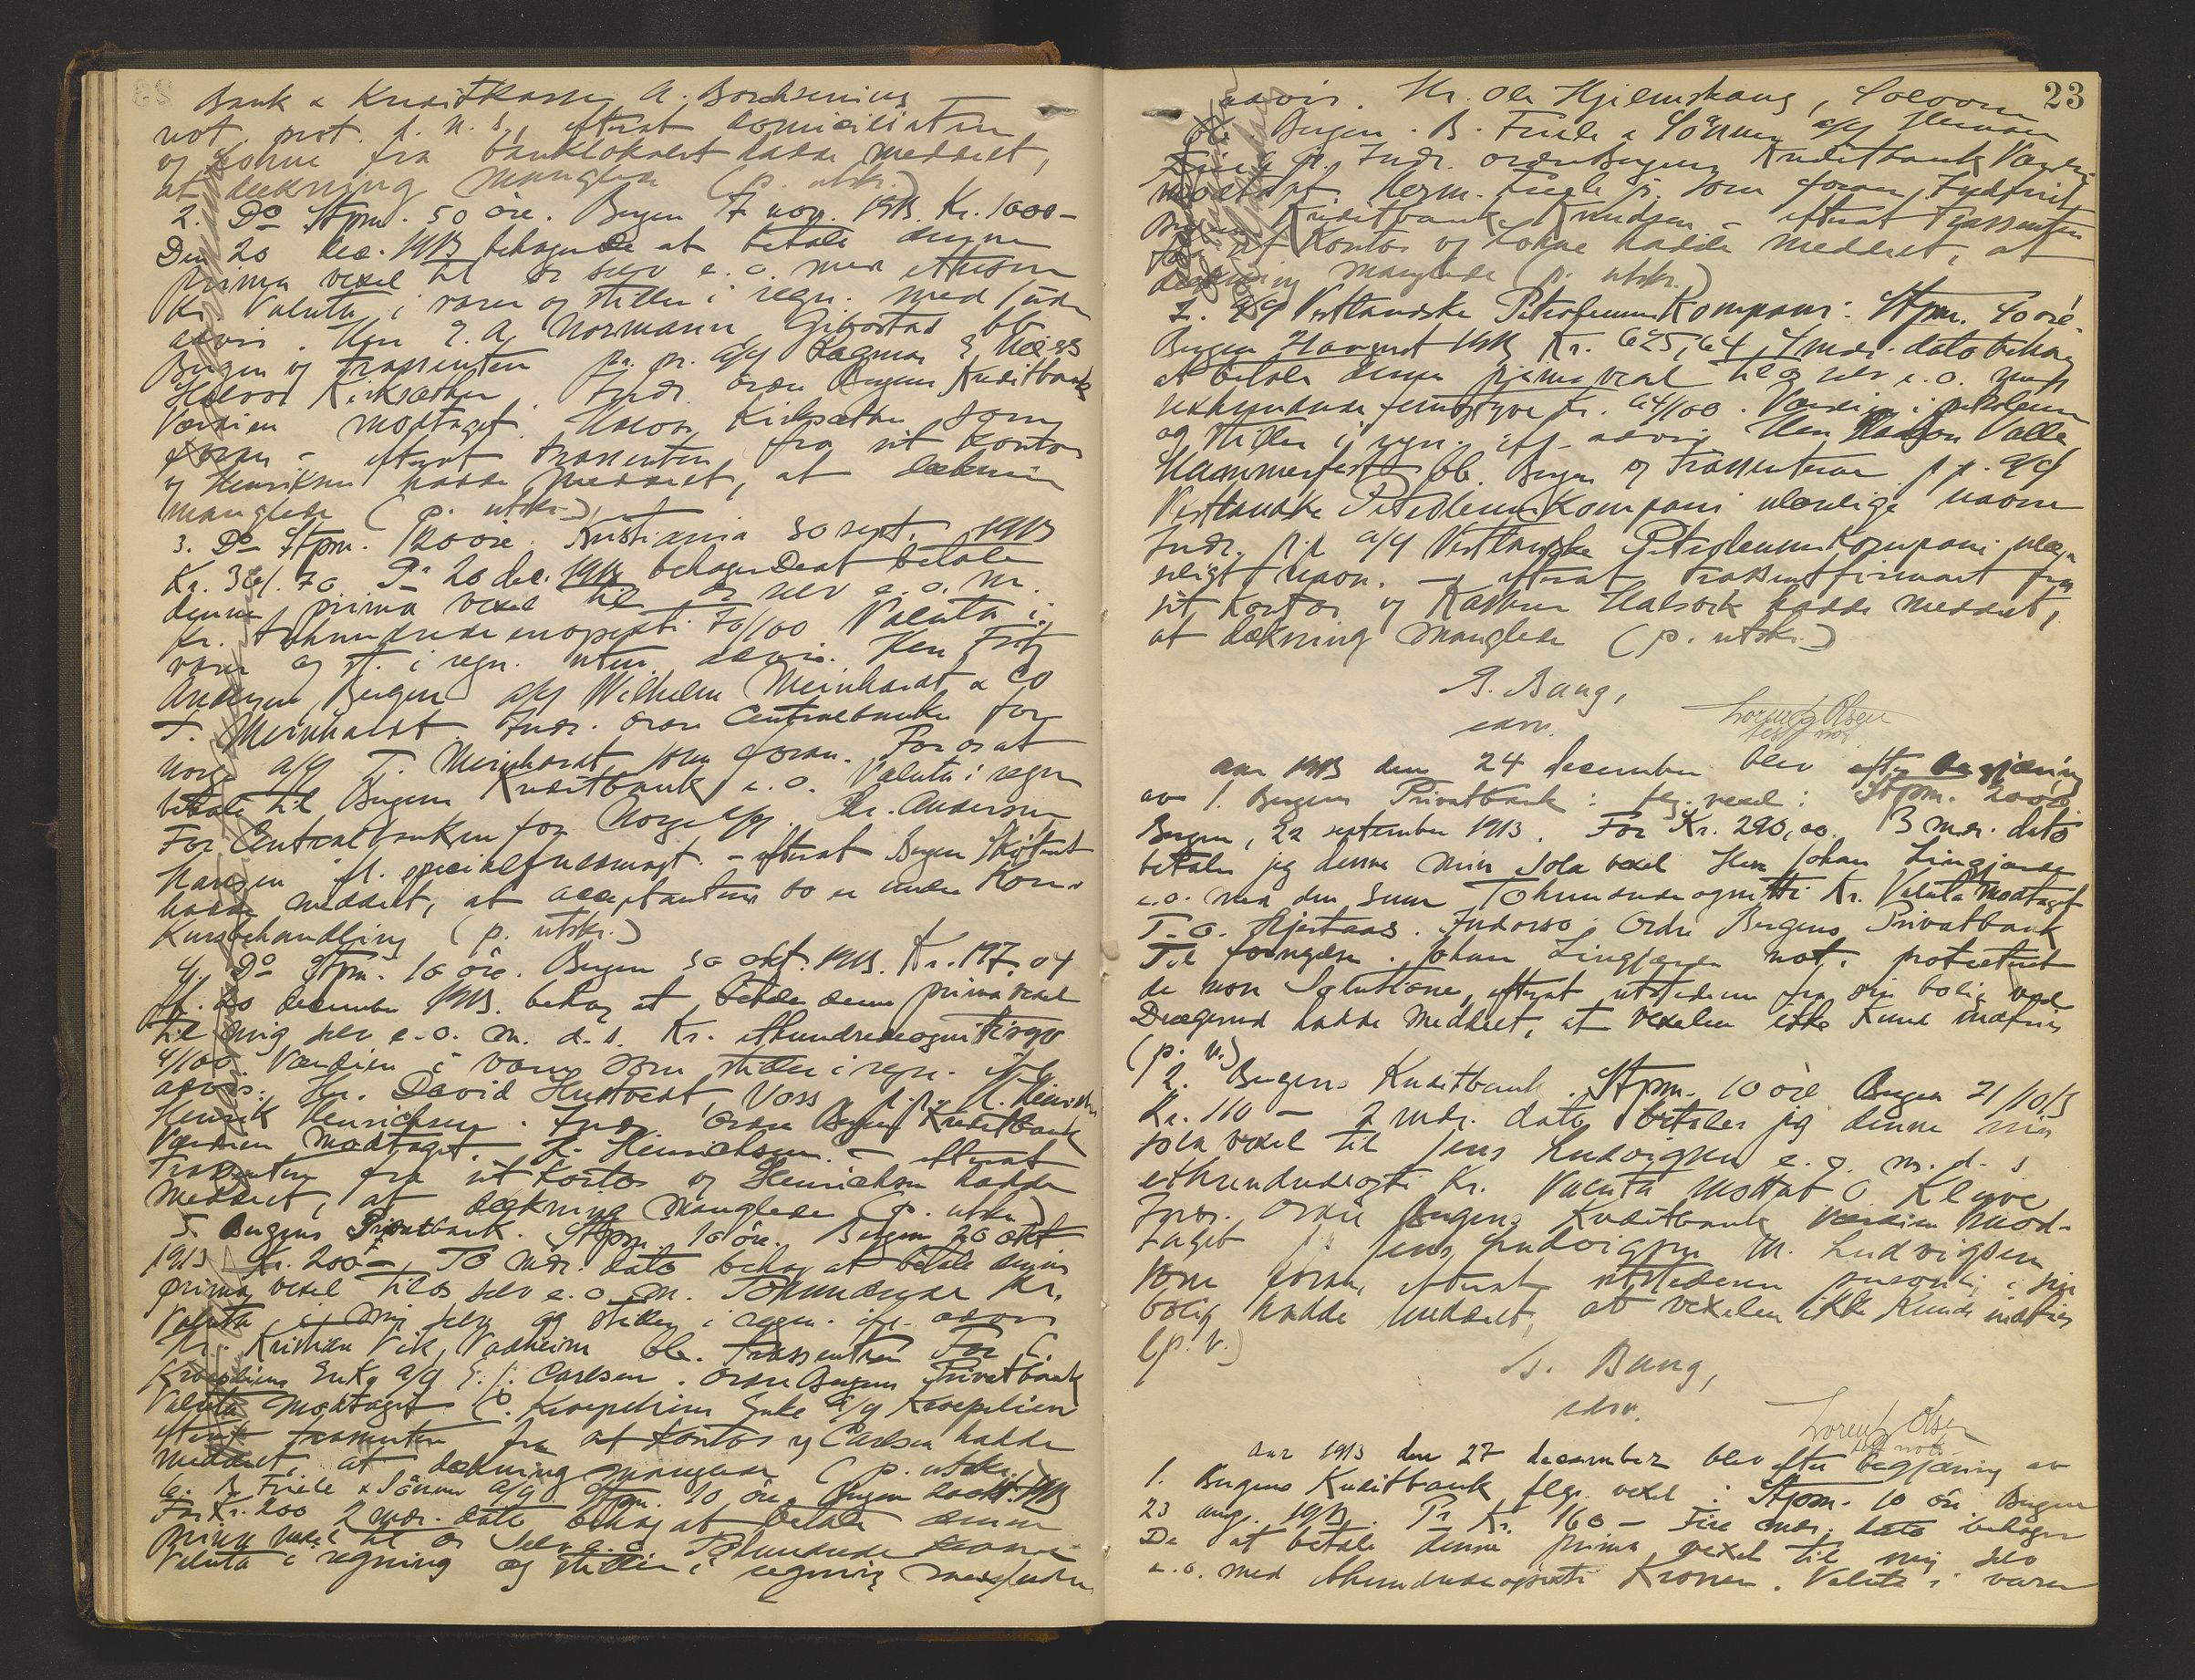 Bank & Kreditkasse A. Borchsenius
not. prot. f. n. s., efterat domiciliaten
og Lohne fra banklokalet hadde meddelt,
at dækning manglede (p. utskr.)
2. Do Stpm. 50 øre. Bergen 7 nov. 1913. Kr. 1000 -
Den 20 dec. 1913 behagede at betale denne
prima vexel til os selv e. o. med ettusen
Kr. Valuta i varer og stilles i regn. med / uden
advis. Herr E. A. Normann Gibostad bb
Bergen og Trassenten pr. pr. a/s Ragnar
Halvor Kirksæther. Indr. ordre Bergens Kreditbank
Værdien modtaget. Halvor Kirksæther som
foran - efterat trassenten fra sit Kontor
og Henriksen hadde meddelt, at dækning
manglede (p. utskr.)
3. Do Stpm. 20 øre. Kristiania 30 sept. 1913
Kr. 361.70. Pr 20 dec. 1913 behagede at betale
denne prima vexel til os selv e. o. m.
Kr. trehundrede enogsexti 70/100 Valuta i
varer og st. i regn. uten advis. Herr Fritz
Andersen, Bergen a/s Wilhelm Meinhardt & Co
T. Meinhardt. Indr. ordre Centralbanken for
Norge a/s T. Meinhardt som foran. For os at
betale til Bergens Kreditbank e. o. Valuta i regn
For Centralbanken for Norge a/s. Chr. Andersen
Hansen if. specialfuldmagt. - efterat Bergens Skifteret
hadde meddelt, at acceptantens bo er under Kon-
Kursbehandling (p. utskr.)
4. Do Stpm. 10 øre. Bergen 30 okt. 1913. Kr. 197,04
pr. 20 december 1913. behag at betale denne prima vexel
til mig selv e. o. m. d. s. Kr. ethundredeognittisyv
4/100. Værdien i varer som stilles i regn. ifl.
advis. Hr. David Hustvedt, Voss p. p. H. Henrichsen
Henrik Henrichsen. Indr. ordre Bergens Kreditbank
Værdien modtaget. H. Henrichsen. - efterat
Trassenten fra sit Kontor og Henrichsen hadde
meddelt, at dækning manglede (p. utskr.)
5. Bergens Privatbank. Stpm. 10 øre. Bergen 20 okt
1913 Kr. 200 -, To mdr. dato behag at betale denne
prima vexel til os selv e. o m. Tohundrede Kr.
Valuta i mig selv og stilles i regn. ifl. advis
Hr. Kristian Vik, Vadheim bb. Trassenten For C.
Kroepeliens Enke a/s E. J. Carlsen. ordre Bergens Privatbank
Valuta modtaget C. Kroepeliens Enke a/s Kroepelien
efterat trassenten fra sit Kontor og Carlsen hadde
meddelt at dækning manglede (p. utskr.)
6. B. Friele & Sönner a/s. Stpm. 10 öre. Bergen 20 okt. 1913
For Kr. 200 2 mdr. dato behag at betale denne
prima vexel til os selv e. o Tohundrede Kroner
Valuta i regning og stilles i regning med / uden
23
advis. Hr. Ole Hjelmskaug,
bb. Bergen. B. Friele & Sönner a/s Herman
Friele jr. Indr. ordre Bergens Kreditbank Værdien
modtat Herm. Friele jr. som foran. Indfriet
Bergens Kreditbank Knudsen - efterat Trassenten
fra sit Kontor og Lohne hadde meddelt, at
dækning manglede (p. utskr.)
7. A/S Vestlandske Petroleums Kompani: Stpm. 40 øre.
Bergen 21 august 1913 Kr. 625,64, 4 mdr. dato behag
at betale denne prima vexel til os selv e. o. med
sexhundrede femogtyve Kr. 64/100. Værdien i petroleum
og stilles i regn. ifl. advis Herr Haagon Valle
Hammerfest bb. Bergen og Trassenterne p. p. a/s
Vestlandske Petroleums Kompani ulæselige navne
Indr. p. p. a/s Vestlandske Petroleums Kompani ulæse-
seligt navn. - efterat trassentfirmaet fra
sit Kontor og Kasserer Halsvik hadde meddelt,
at dækning manglede (p. utskr.)
B. Bang,
edsv.
Lorentz Olsen
test. not.
Aar 1913 den 24 december blev efter begjæring
av 1. Bergens Privatbank: flg. vexel: Stpm. 20 øre
Bergen, 22 september 1913. For Kr. 290,00. 3 mdr. dato
betaler jeg denne min sola vexel Herr Johan Lingjærde
e. o. med den sum Tohundredeognitti Kr. Valuta modtaget
T. O. Hjertaas. Indorso: Ordre Bergens Privatbank
Til forngelse. Johan Lingjærde not. protestert
de non Solutione, efterat utstederen fra sin bolig ved
Drægerud hadde meddelt, at vexelen ikke kunde indfries
(p. v.)
2. Bergens Kreditbank. Stpm. 10 öre Bergen 21/10/13
Kr. 180 - 2 mdr. dato betaler jeg denne min
sola vexel til Jens Ludvigsen e. o. m. d. s
ethundredeogotti Kr. Valuta mottat O Kleppe
Indr. Ordre Bergens Kreditbank Værdien mod-
taget pr Jens Ludvigsen M. Ludvigsen
som foran, efterat utstederen personlig i sin
bolig hadde meddelt, at vexelen ikke kunde indfries
(p. v.)
B. Bang,
edsv.
Lorentz Olsen
test. not.
Aar 1913 den 27 december blev efter begjæring av
1. Bergens Kreditbank flgr. vexel: Stpm. 10 öre Bergen
23 aug. 1913. Pr Kr. 160 - Fire mdr. dato behager
De at betale denne prima vexel til mig selv
e. o. med Ethundredeogsexti Kroner. Valuta i varer